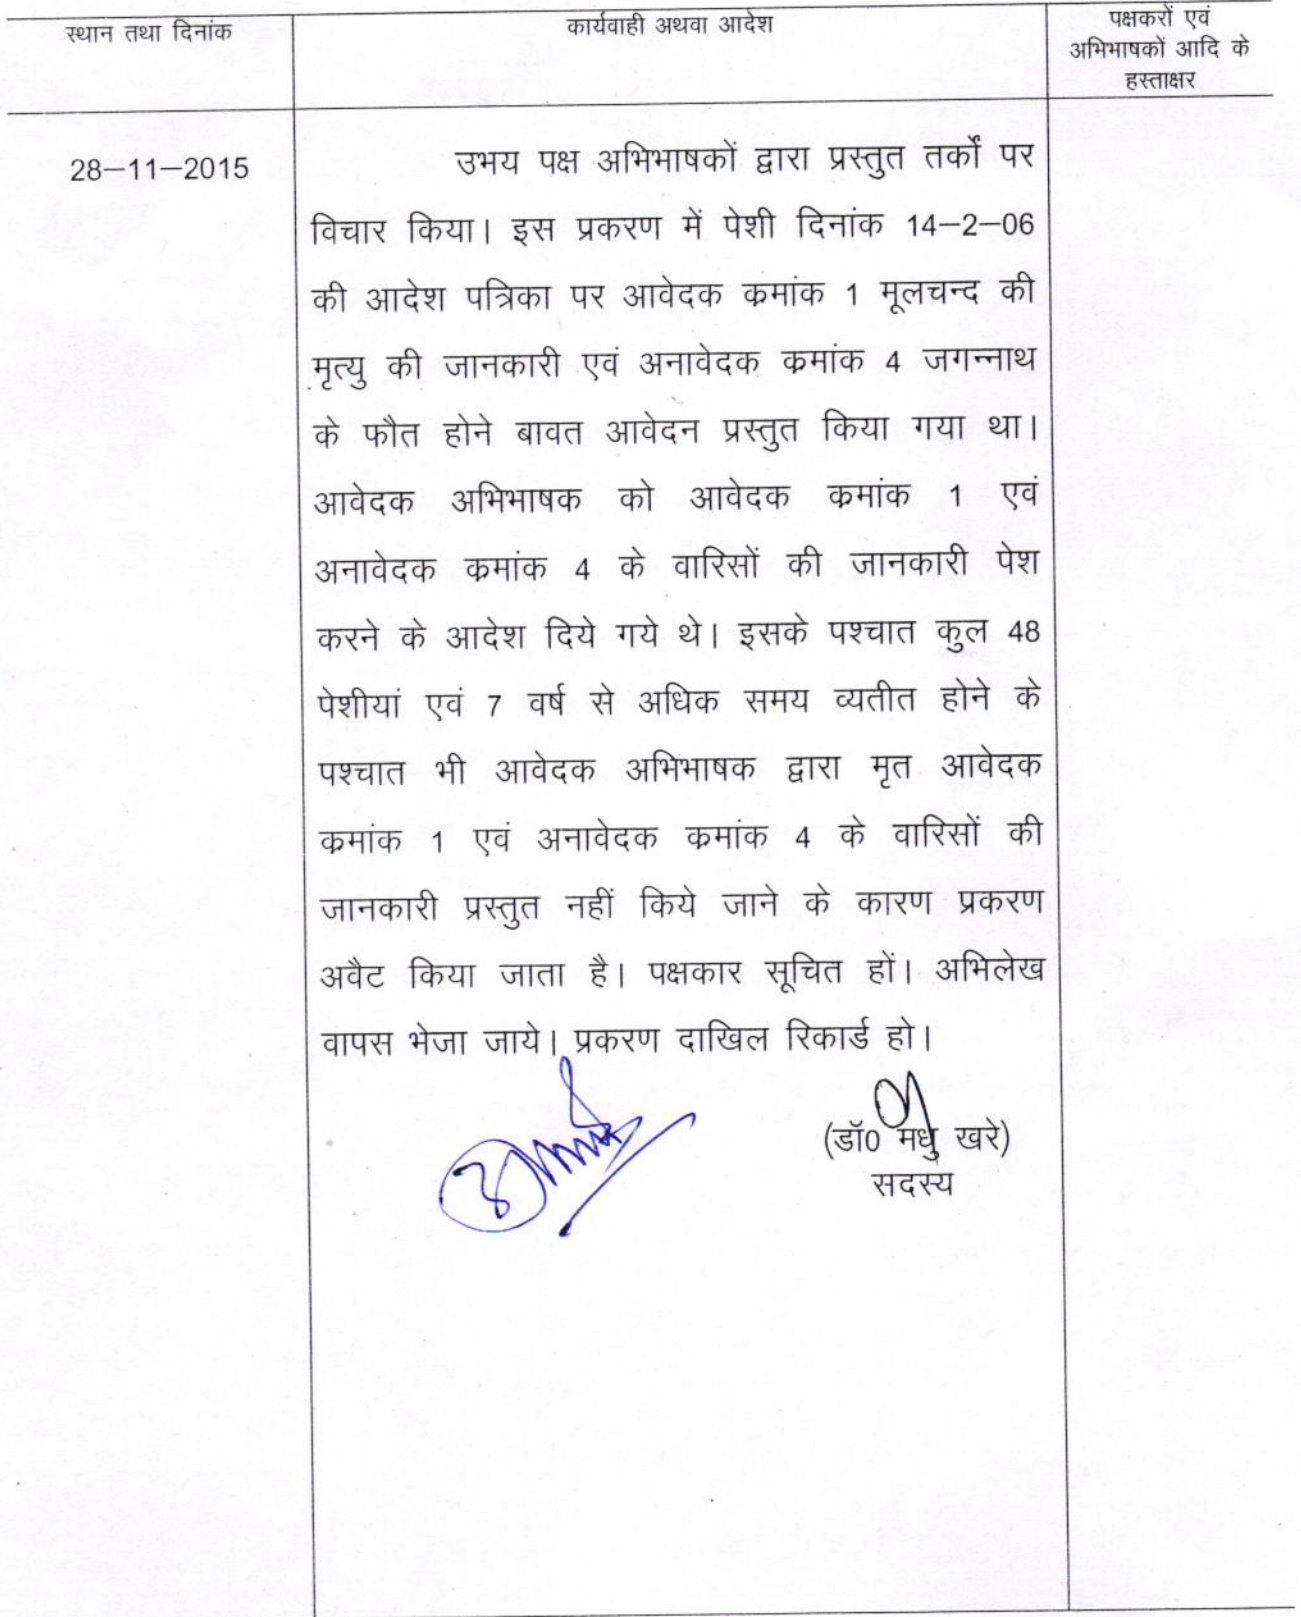 स्थान तथा दिनांक
कार्यवाही अथवा आदेश
पक्षकरों एवं
अभिभाषकों आदि के
हस्ताक्षर
28–11–2015
उभय पक्ष अभिभाषकों द्वारा प्रस्तुत तर्कों पर
विचार किया। इस प्रकरण में पेशी दिनांक 14–2–06
की आदेश पत्रिका पर आवेदक कमांक 1 मूलचन्द की
मृत्यु की जानकारी एवं अनावेदक कमांक 4 जगन्नाथ
के फौत होने बावत आवेदन प्रस्तुत किया गया था।
आवेदक अभिभाषक को आवेदक कमांक 1 एवं
अनावेदक कमांक 4 के वारिसों की जानकारी पेश
करने के आदेश दिये गये थे। इसके पश्चात कुल 48
पेशीयां एवं 7 वर्ष से अधिक समय व्यतीत होने के
पश्चात भी आवेदक अभिभाषक द्वारा मृत आवेदक
कमांक 1 एवं अनावेदक कमांक 4 के वारिसों की
जानकारी प्रस्तुत नहीं किये जाने के कारण प्रकरण
अवैट किया जाता है। पक्षकार सूचित हों। अभिलेख
वापस भेजा जाये। प्रकरण दाखिल रिकार्ड हो।
(डॉ0 मधु खरे)
सदस्य